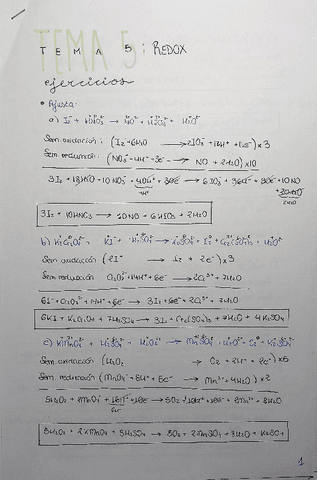 TEMA 5
TEMA 5: REDOX
ejercicios
• Ajusta:
a) I₂ + HNO₃ → NO + HIO₃ + H₂O
Sem. oxidación: (I₂ + 6H₂O → 2IO₃⁻ + 12H⁺ + 10e⁻) × 3
Sem. reducción: (NO₃⁻ + 4H⁺ + 3e⁻ → NO + 2H₂O) × 10
3I₂ + 18H₂O + 10NO₃⁻ + 40H⁺ + 30e⁻ → 6IO₃⁻ + 36H⁺ + 30e⁻ + 10NO + 20H₂O
4H⁺
2H₂O
3I₂ + 10HNO₃ → 10NO + 6HIO₃ + 2H₂O
b) K₂Cr₂O₇ + KI + H₂SO₄ → K₂SO₄ + I₂ + Cr₂(SO₄)₃ + H₂O
Sem. oxidación (2I⁻ → I₂ + 2e⁻) × 3
Sem. reducción Cr₂O₇²⁻ + 14H⁺ + 6e⁻ → 2Cr³⁺ + 7H₂O
6I⁻ + Cr₂O₇²⁻ + 14H⁺ + 6e⁻ → 3I₂ + 6e⁻ + 2Cr³⁺ + 7H₂O
6KI + K₂Cr₂O₇ + 7H₂SO₄ → 3I₂ + Cr₂(SO₄)₃ + 7H₂O + 4K₂SO₄
c) KMnO₄ + H₂SO₄ + H₂O₂ → MnSO₄ + H₂O + O₂ + K₂SO₄
Sem. oxidación (H₂O₂ → O₂ + 2H⁺ + 2e⁻) × 5
Sem. reducción (MnO₄⁻ + 8H⁺ + 5e⁻ → Mn²⁺ + 4H₂O) × 2
5H₂O₂ + 2MnO₄⁻ + 16H⁺ + 10e⁻ → 5O₂ + 10H⁺ + 10e⁻ + 2Mn²⁺ + 8H₂O
6H⁺
5H₂O₂ + 2KMnO₄ + 3H₂SO₄ → 5O₂ + 2MnSO₄ + 8H₂O + K₂SO₄
1